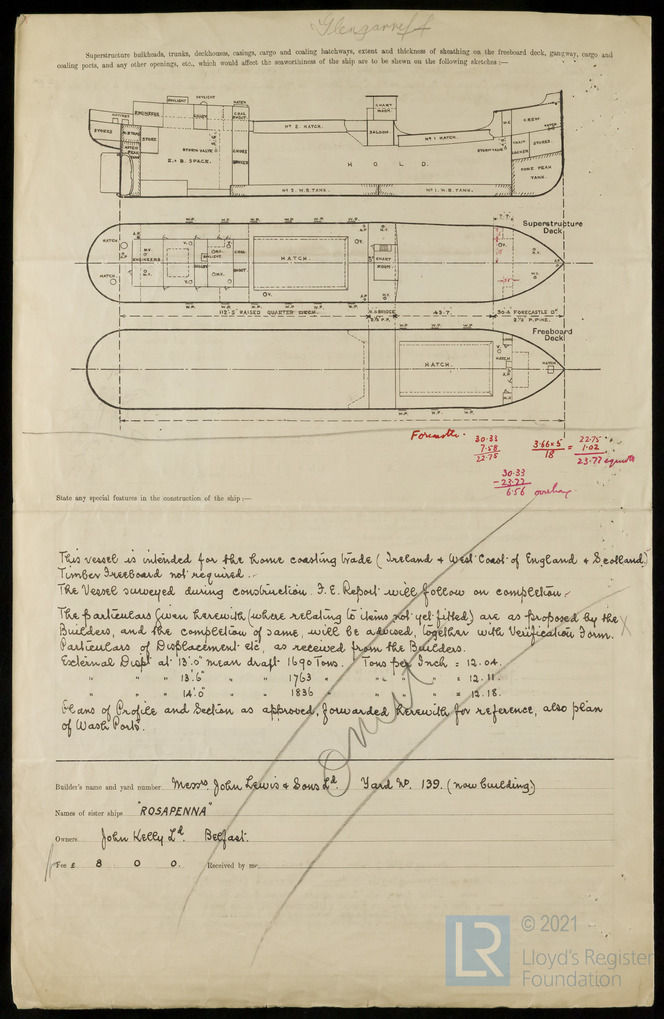 Glengarriff
Superstructure bulkheads, trunks, deckhouses, casings, cargo and coaling hatchways, extent and thickness of sheathing on the freeboard deck, gangway, cargo and
coaling ports, and any other openings, etc., which would affect the seaworthiness of the ship are to be shewn on the following sketches :—
SKYLIGHT
SKYLIGHT
HATCH
CHART ROOM.
ENGINEERS
GALLEY
COAL SHOOT
Nº 2. HATCH.
SALOON.
Nº 1 HATCH.
CREW.
STORES
STORE
AFTER PEAK
STORM VALVE
STORM VALVE
CHAIN LOCKER
STORES.
E & B. SPACE.
CROSS BUNKER
H O L D.
FORE PEAK TANK.
Nº 2. W.B. TANK.
Nº 1. W.B. TANK.
W.P. W.P. W.P. W.P. W.P.
7'.7"
Superstructure
Deck
HATCH
ENGINEERS
GALLEY
COAL SHOOT
HATCH.
CHART ROOM
HATCH
W.P. W.P. W.P. W.P. W.P.
112'.5 RAISED QUARTER DECK.
BRIDGE
43.7.
30.4 FORECASTLE Dᴷ
2½ P.P.
2½ P. PINE.
Freeboard
Deck
W.P. W.P. W.P.
HATCH.
HATCH
HATCH
W.P. W.P. W.P.
30.33
7.58
22.75
3.66 x 5
18
=
22.75
1.02
23.77
30.33
- 23.77
6.56 overhang
State any special features in the construction of the ship :—
This vessel is intended for the home coasting trade (Ireland & West Coast of England & Scotland.)
Timber Freeboard not required.
The Vessel surveyed during construction. F.E. Report will follow on completion.
The particulars given herewith (where relating to items not yet fitted) are as proposed by the
Builders, and the completion of same, will be advised, together with Verification Form.
Particulars of Displacement etc, as received from the Builders.
External Displᵗ at 13'.0" mean draft 1690 Tons. Tons per Inch = 12.04.
" " " 13'.6" " " 1763 " " " " = 12.11.
" " " 14'.0" " " 1836 " " " " = 12.18.
Plans of Profile and Section as approved, forwarded herewith for reference, also plan
of Wash Ports.
Omit
Builder's name and yard number Messrs. John Lewis & Sons Ld. Yard Nº. 139. (now building.)
Names of sister ships "ROSAPENNA"
Owners John Kelly Ld. Belfast.
Fee £ 8 0 0. Received by me
LR
© 2021
Lloyd's Register
Foundation